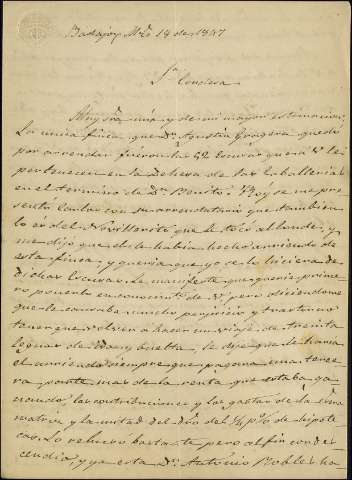 Badajoz Mzo 18 de 1847
Sra Condesa
Muy Sra mia y de mi mayor estimacion:
La unica finca que Dn Agustin Gragera quedó
por arrendar fueron las 52 que a V. le
pertenecen en la Dehesa de las Caballerias
en el termino de Dn Benito. Hoy se me pre
sentó con su arrendatario que tambien
lo es del Novillerito que le tocó al Conde, y
me dijo que el le habia hecho arriendo de
esta finca, y queria que yo se lo hiciera de
dichas. Le manifesté que queria prime
ro ponerlo en conocimto de V. pero diciendome
que le causaba mucho perjuicio y trastorno
tener que volver a hacer un viaje de treinta
leguas de ida y buelta, le dije que le haria
el arriendo siempre que pagara una terce
ra parte mas de la renta que estaba ga
nando, las contribuciones y los gastos de la
matriz, y la mitad del dro del ½ p% de hipote
cas. Lo rehusó bastante pero al fin condes
cendió, y ya está Dn Antonio Robles ha